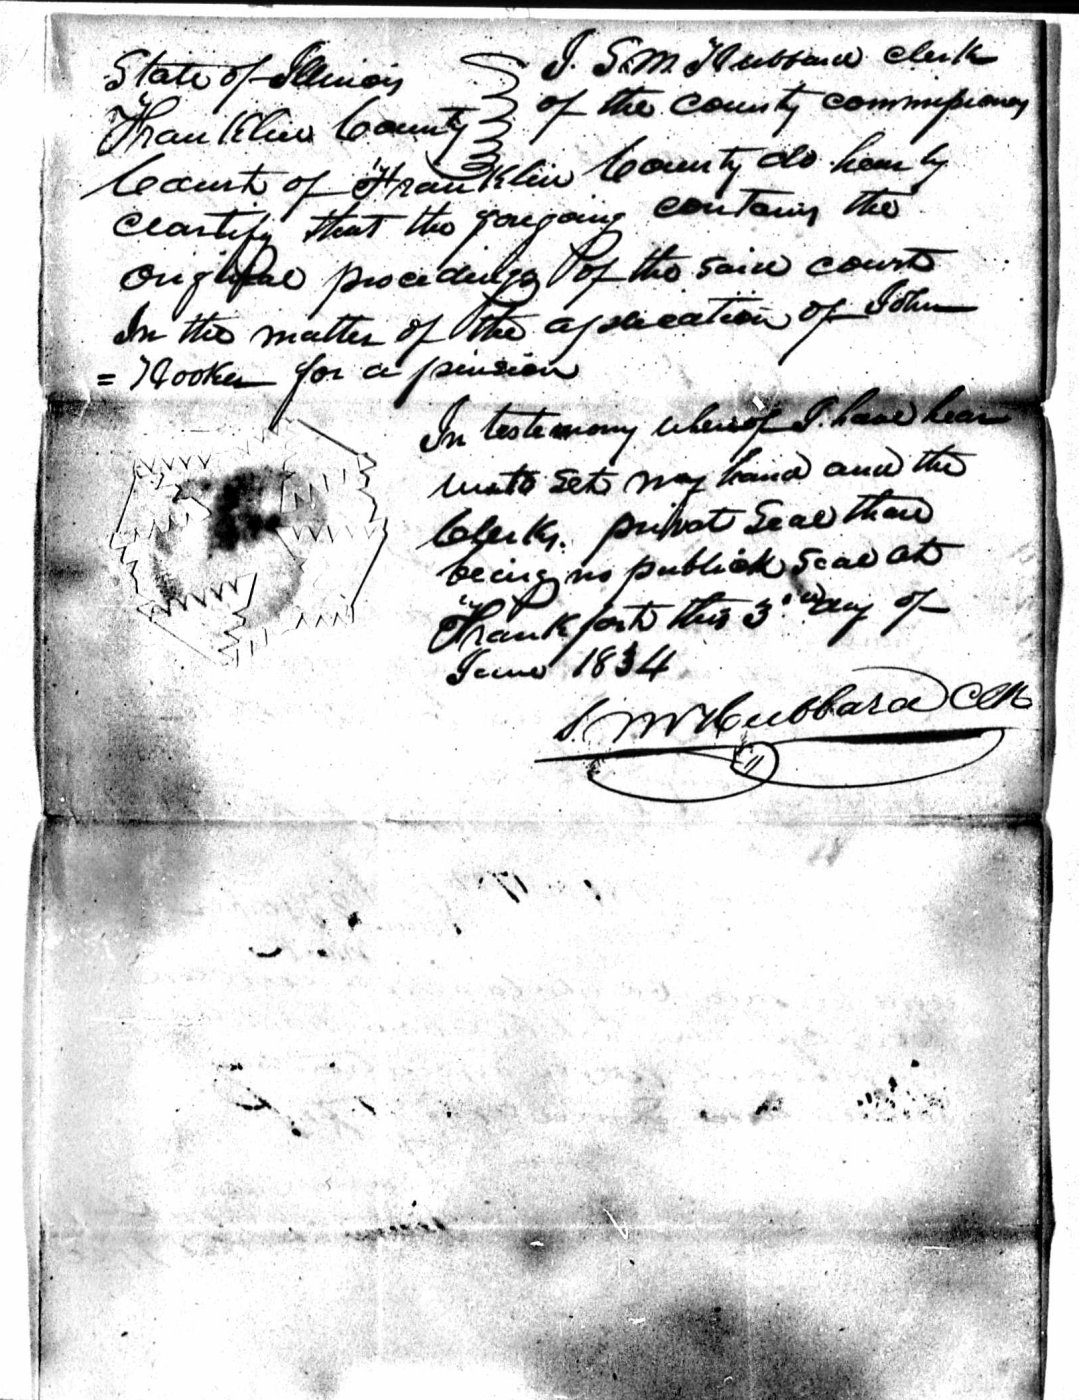 State of Illinois } I. S.M. Hubbard clerk
Franklin County } of the county commissioners
Court of Franklin County do hearby
ceartify that the forgoing contains the
original procedings of the said court
In the matter of the application of John
= Hooker for a pinsion
In testimony wherof I. have hear
unto set my hand and the
Clerks. privat Seal thare
being no publick seal at
Frankfort this 3rd day of
June 1834
S. M Hubbard Clk